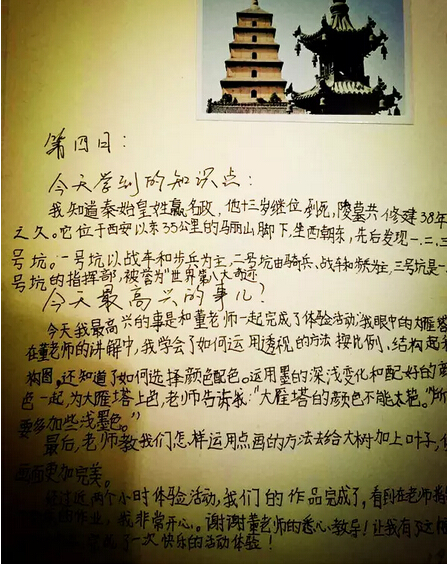 第四日：
今天学到的知识点：
我知道秦始皇姓嬴名政，他十三岁继位到死，陵墓共修建38年
之久。它位于西安以东35公里的骊山脚下，坐西朝东，先后发现一、二、三
号坑。一号坑以战车和步兵为主，二号坑由骑兵、战车和步兵为主，三号坑是一
号坑的指挥部，被誉为"世界第八大奇迹
今天最高兴的事儿？
今天我最高兴的事是和董老师一起完成了体验活动：我眼中的大雁塔
在董老师的讲解中，我学会了如何运用透视的方法按比例、结构起
构图，还知道了如何选择颜色配色。运用墨的深浅变化和配好的
色一起，为大雁塔上色，老师告诉我："大雁塔的颜色不能太艳。"所
要多加些浅墨色。"
最后，老师教我们怎样运用点画的方法去给大树加上叶子，
画面更加完美。
经过近两个小时体验活动，我们的作品完成了，看到在老师
的作业，我非常开心。谢谢董老师的悉心教导！让我有
了一次快乐的活动体验！